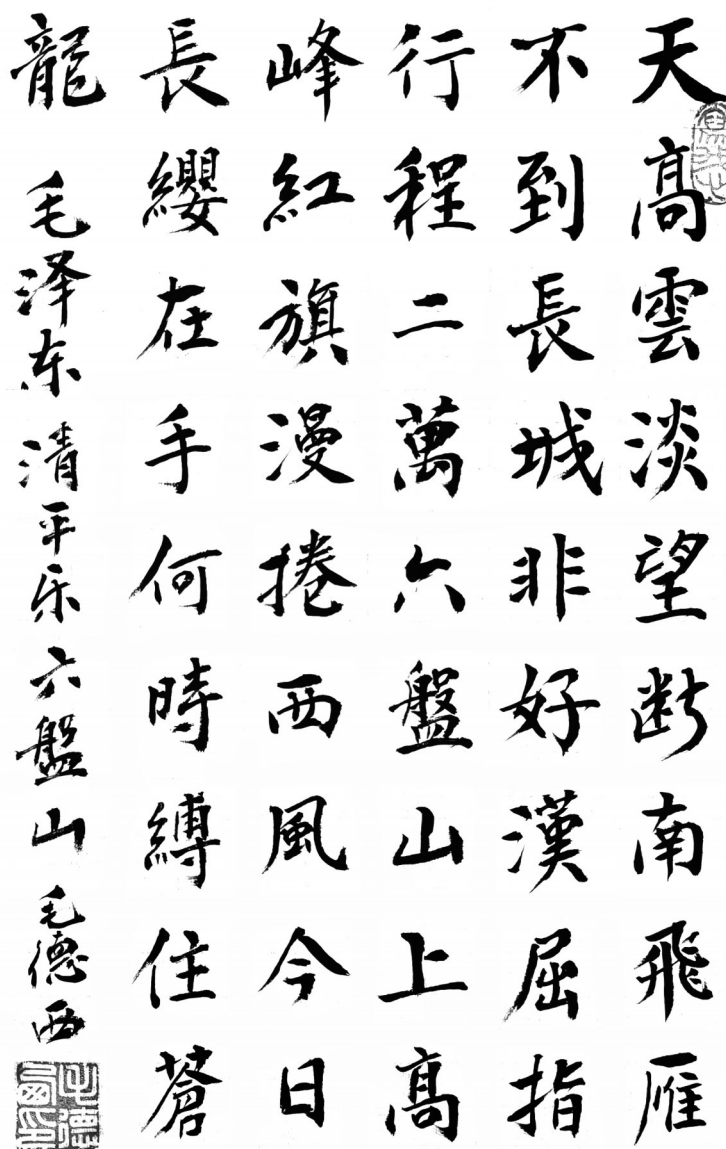 天高雲淡望断南飛雁
不到長城非好漢屈指
行程二萬六盤山上高
峰紅旗漫捲西風今日
長纓在手何時縛住蒼
龍
毛泽东清平乐六盤山毛德西
毛德西印